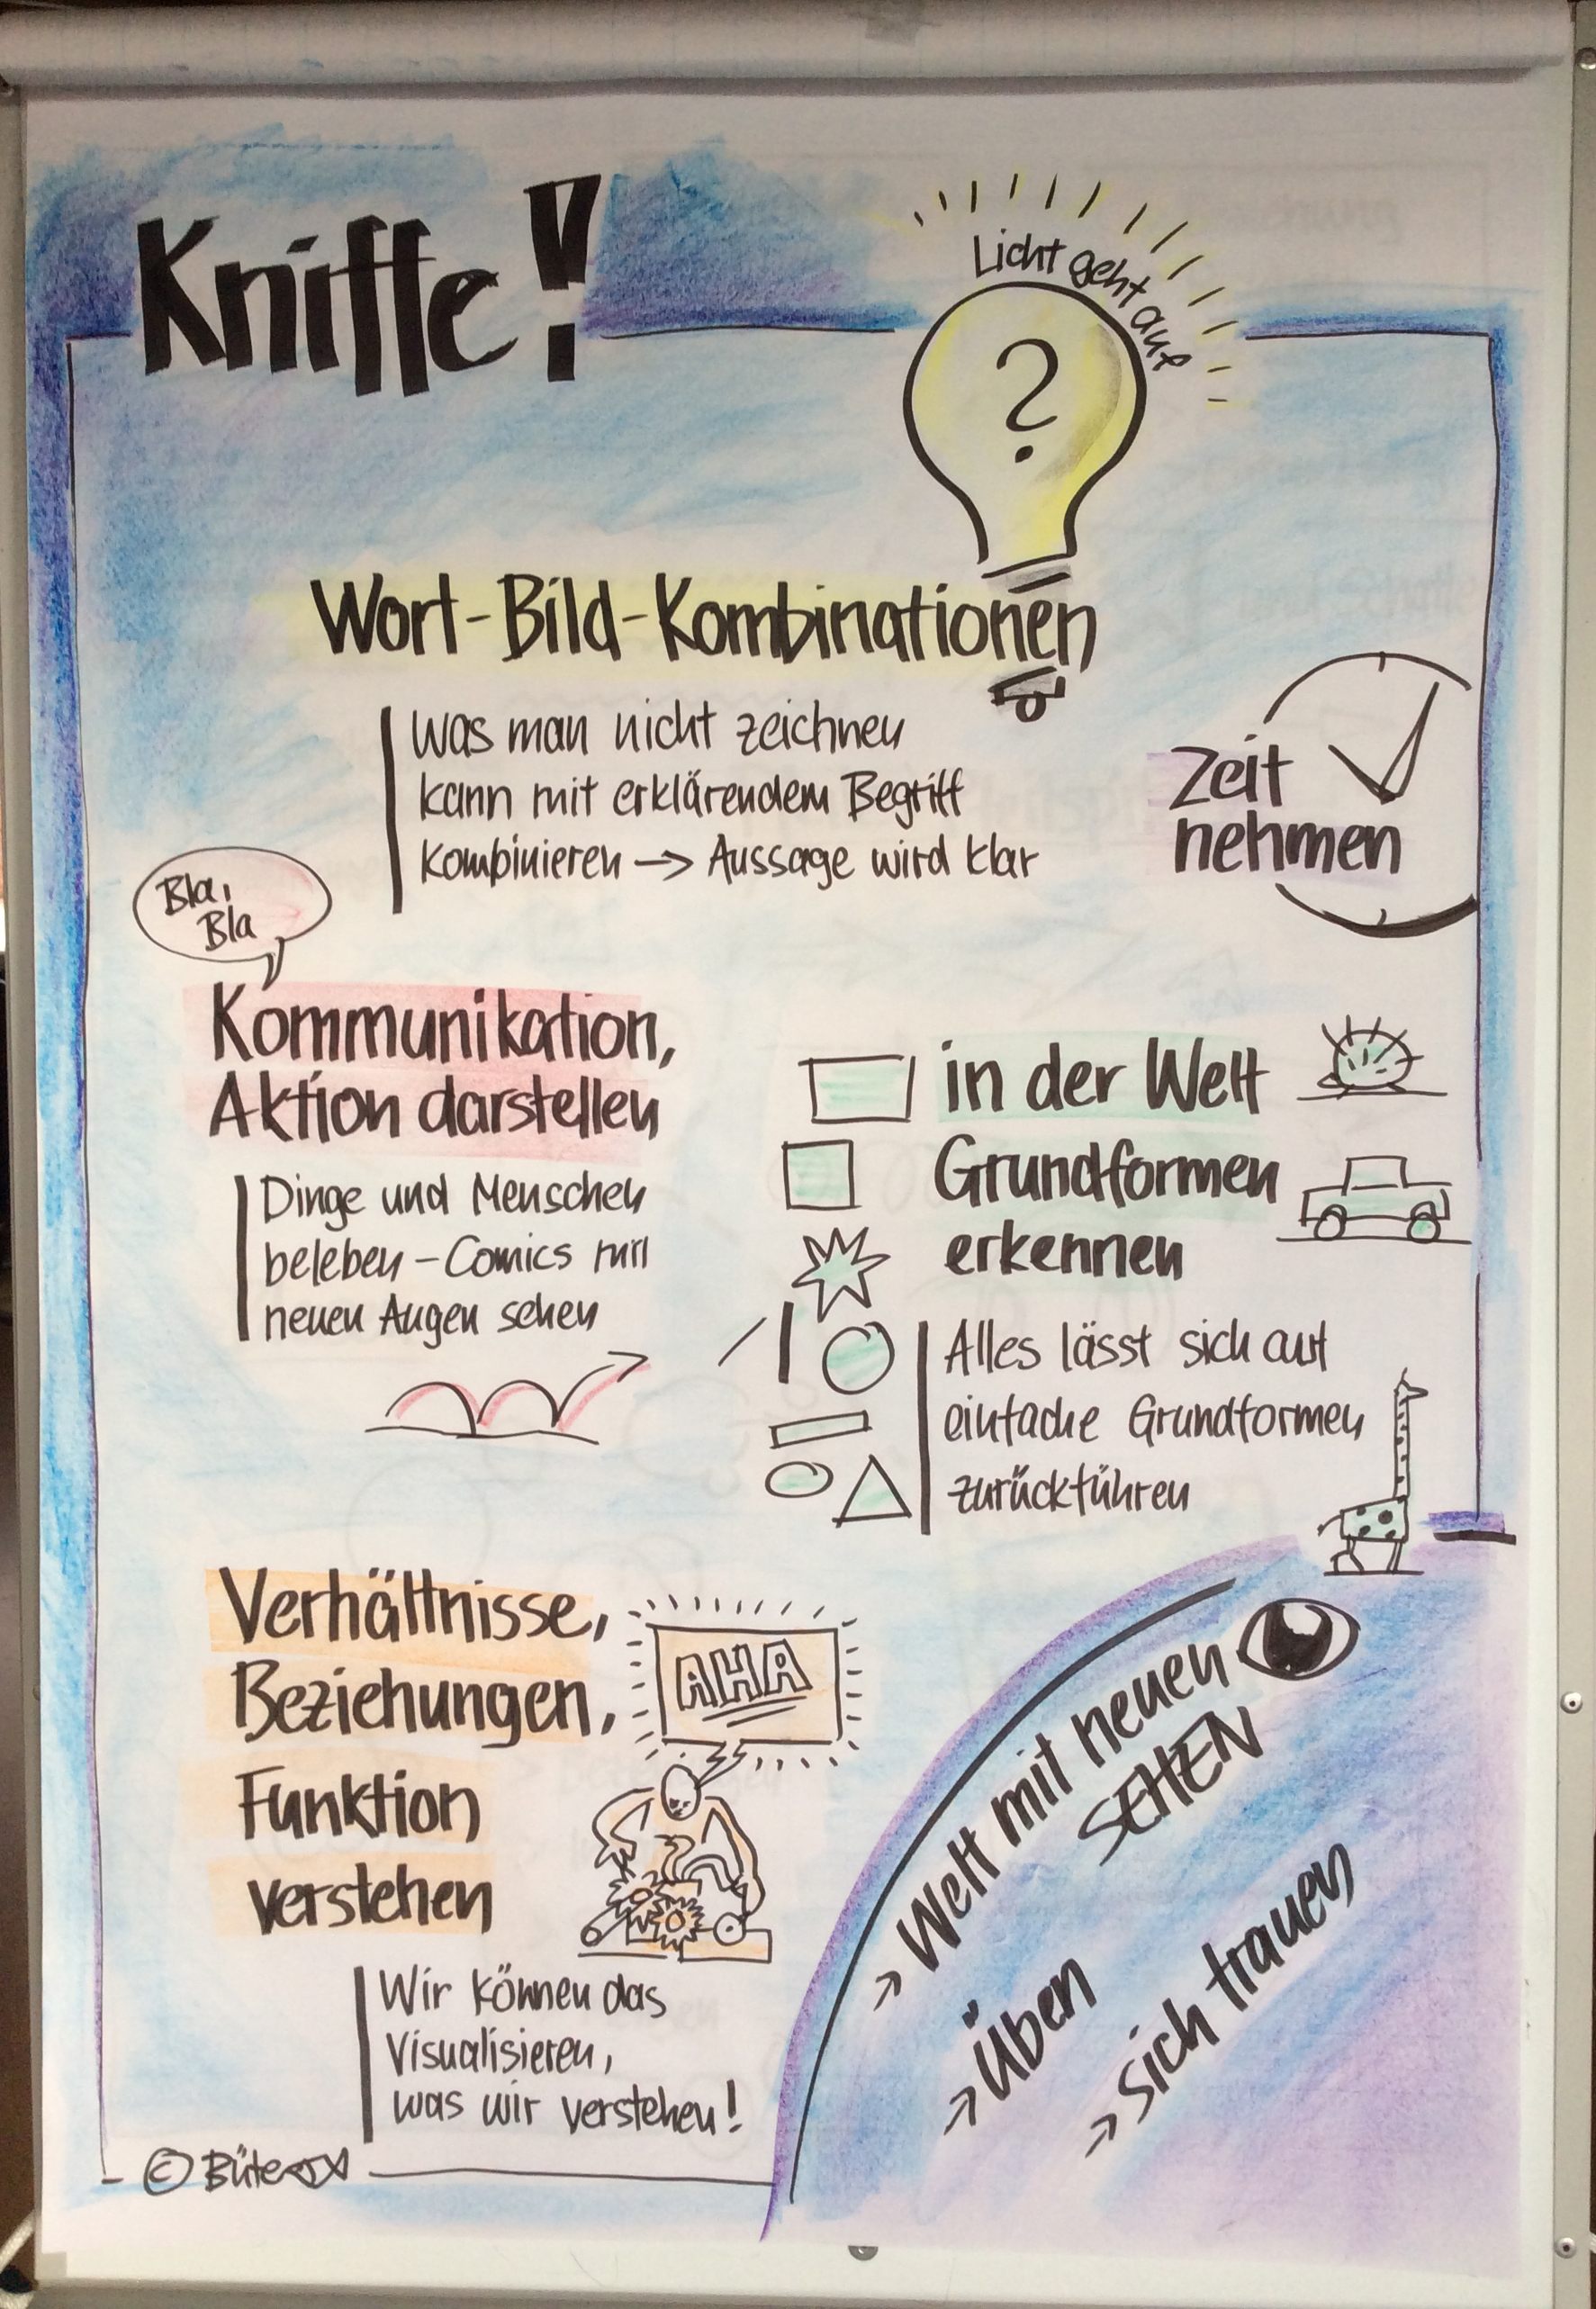 Kniffe!
Licht geht auf
?
Wort-Bild-Kombinationen
Was man nicht zeichnen
kann mit erklärendem Begriff
kombinieren → Aussage wird klar
Zeit
nehmen
Bla,
Bla
Kommunikation,
Aktion darstellen
Dinge und Menschen
beleben - Comics mit
neuen Augen sehen
in der Welt
Grundformen
erkennen
Alles lässt sich auf
einfache Grundformen
zurückführen
Verhältnisse,
Beziehungen,
Funktion
verstehen
AHA
Wir können das
Visualisieren,
was wir verstehen!
→ Welt mit neuen
SEHEN
→ Üben
→ sich trauen
© Büte